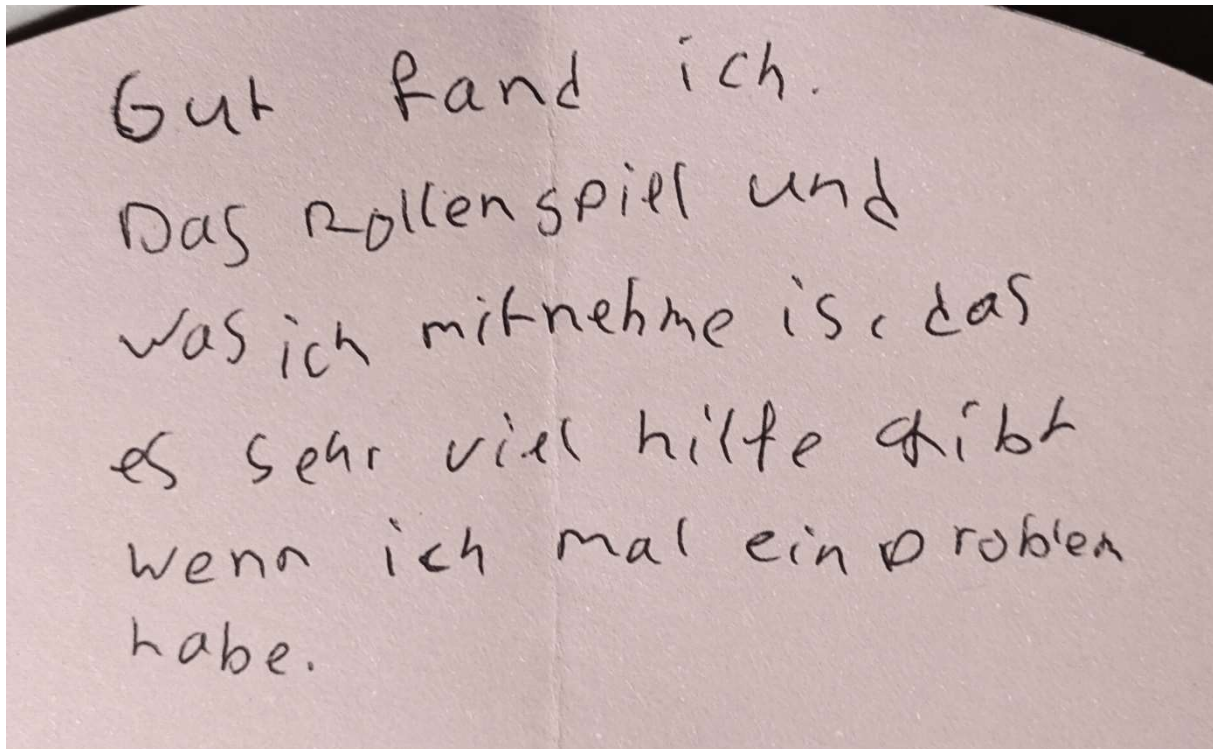 Gut fand ich.
Das Rollenspiel und
was ich mitnehme is, das
es sehr viel hilfe gibt
wenn ich mal ein problem
habe.